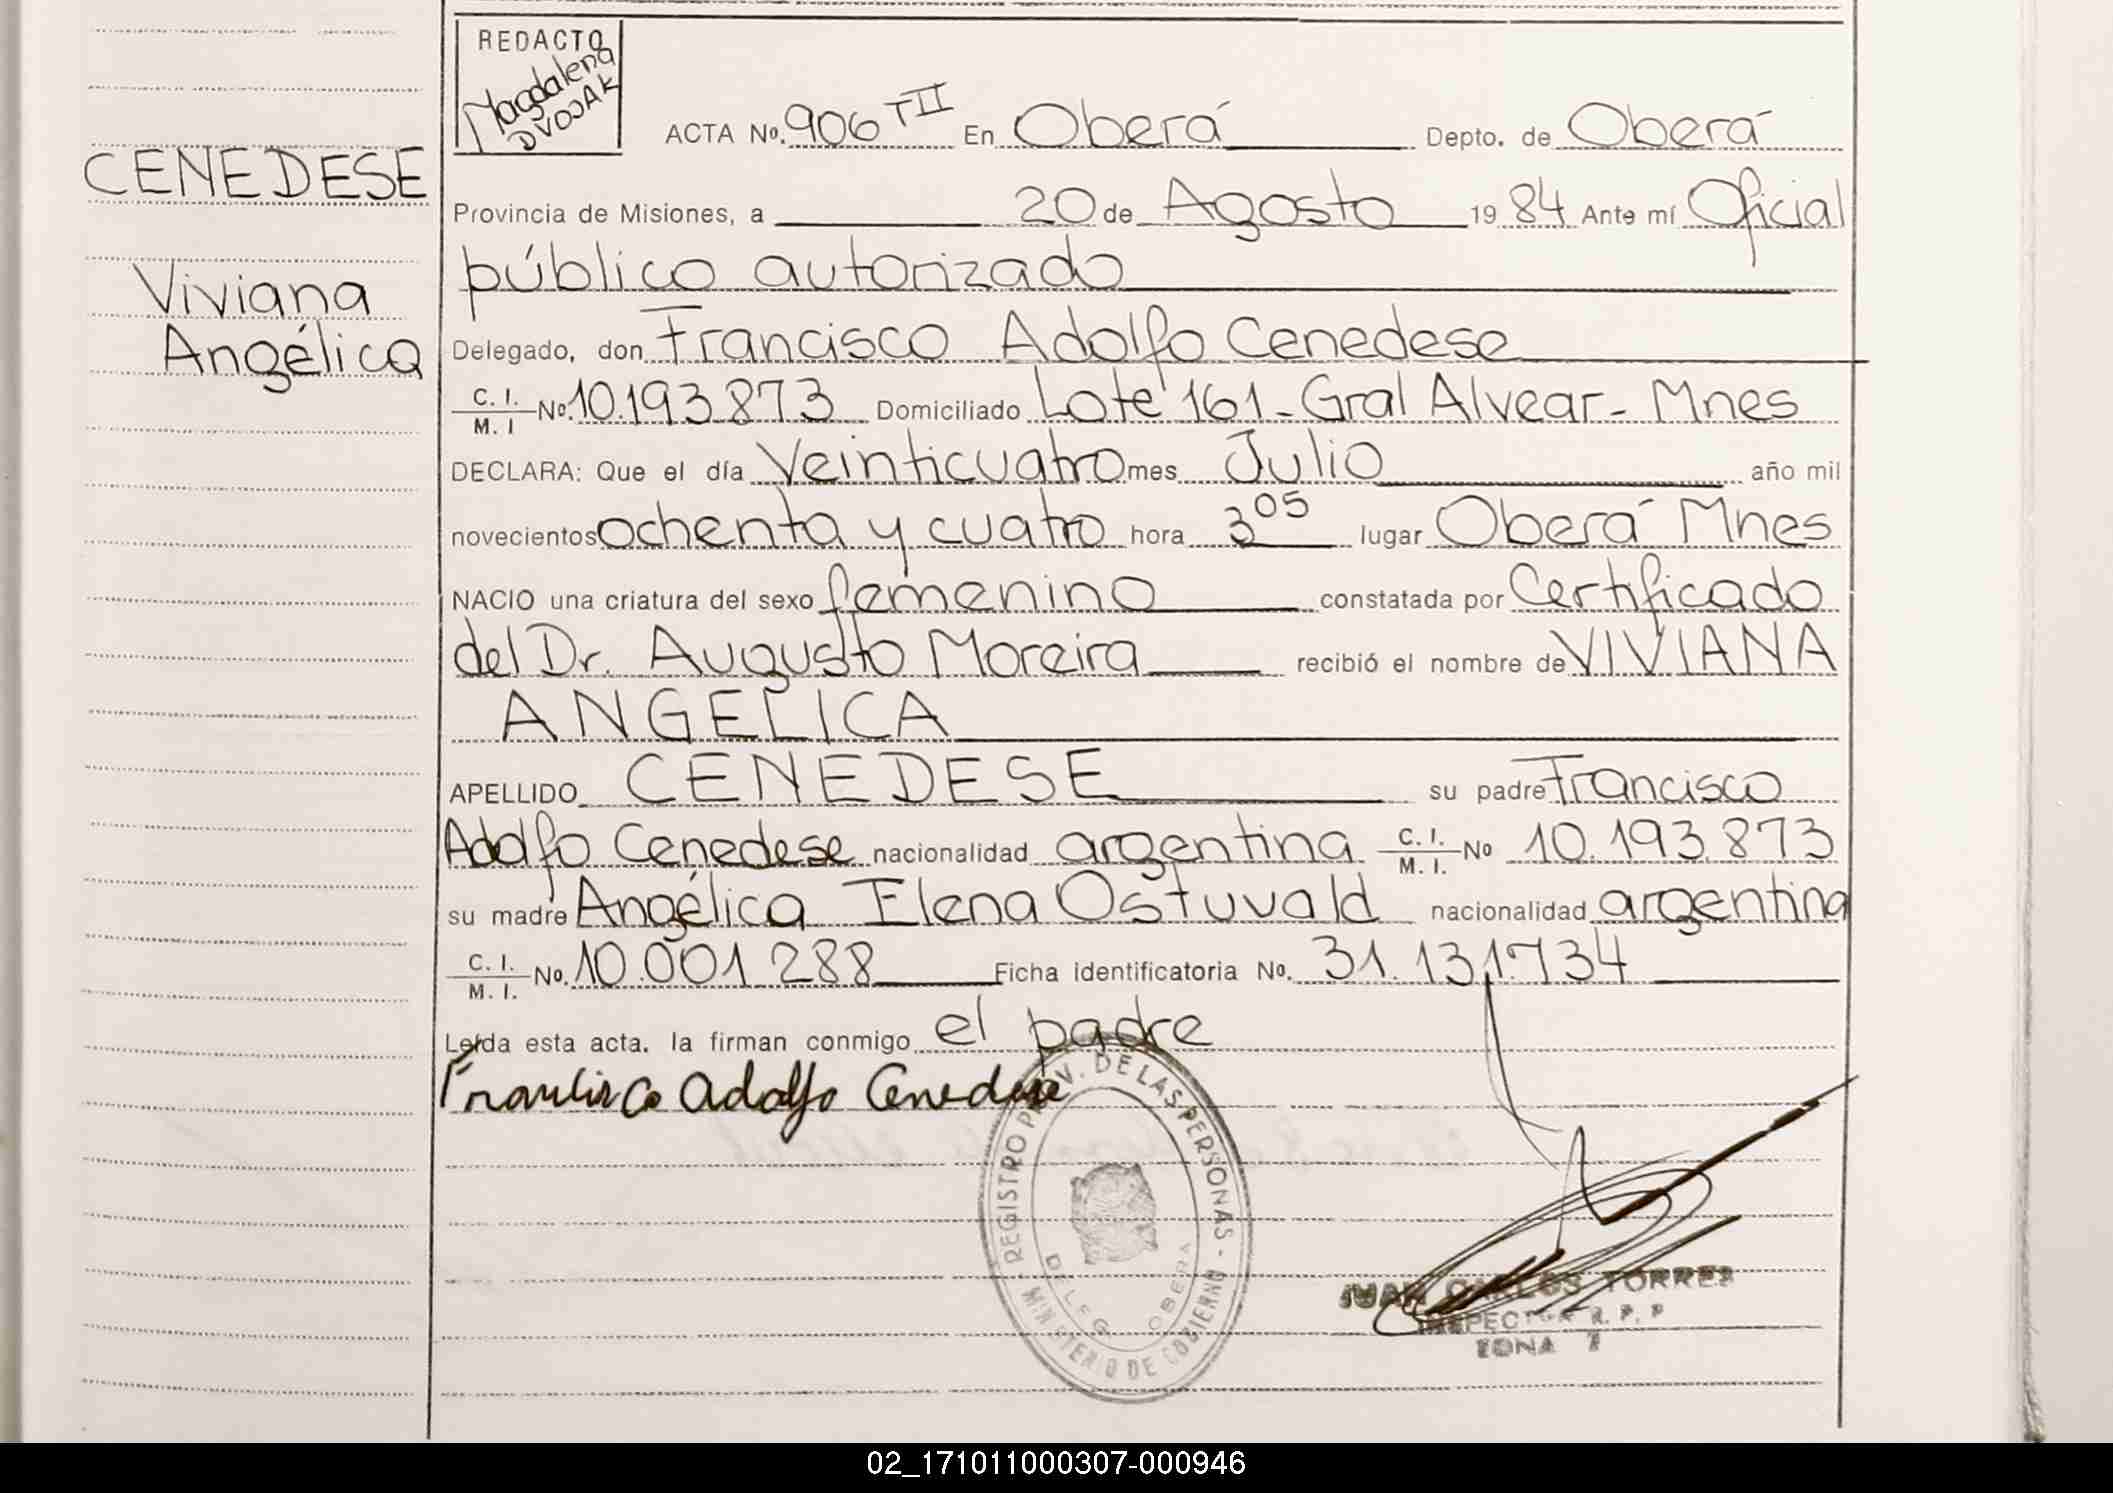 REDACTO
Magdalena
DVOJAK
ACTA No. 906 TII En Oberá Depto. de Oberá
CENEDESE
Provincia de Misiones, a 20 de Agosto 19 84 Ante mí Oficial
público autorizado
Viviana
Angélica
Delegado, don Francisco Adolfo Cenedese
C. I. / M. I No. 10.193.873 Domiciliado Lote 161 - Gral Alvear - Mnes
DECLARA: Que el día Veinticuatro mes Julio año mil
novecientos ochenta y cuatro hora 3 05 lugar Oberá Mnes
NACIO una criatura del sexo femenino constatada por Certificado
del Dr. Augusto Moreira recibió el nombre de VIVIANA
ANGELICA
APELLIDO CENEDESE su padre Francisco
Adolfo Cenedese nacionalidad argentina C. I. / M. I. No 10.193.873
su madre Angélica Elena Ostuvald nacionalidad argentina
C. I. / M. I. No. 10.001.288 Ficha identificatoria No. 31.131.734
Leída esta acta. la firman conmigo el padre
Francisco Adolfo Cenedese
REGISTRO PROV. DE LAS PERSONAS - MINISTERIO DE GOBIERNO
DELEG. OBERA
JUAN CARLOS TORRES
INSPECTOR R. P. P
ZONA 7
02_171011000307-000946